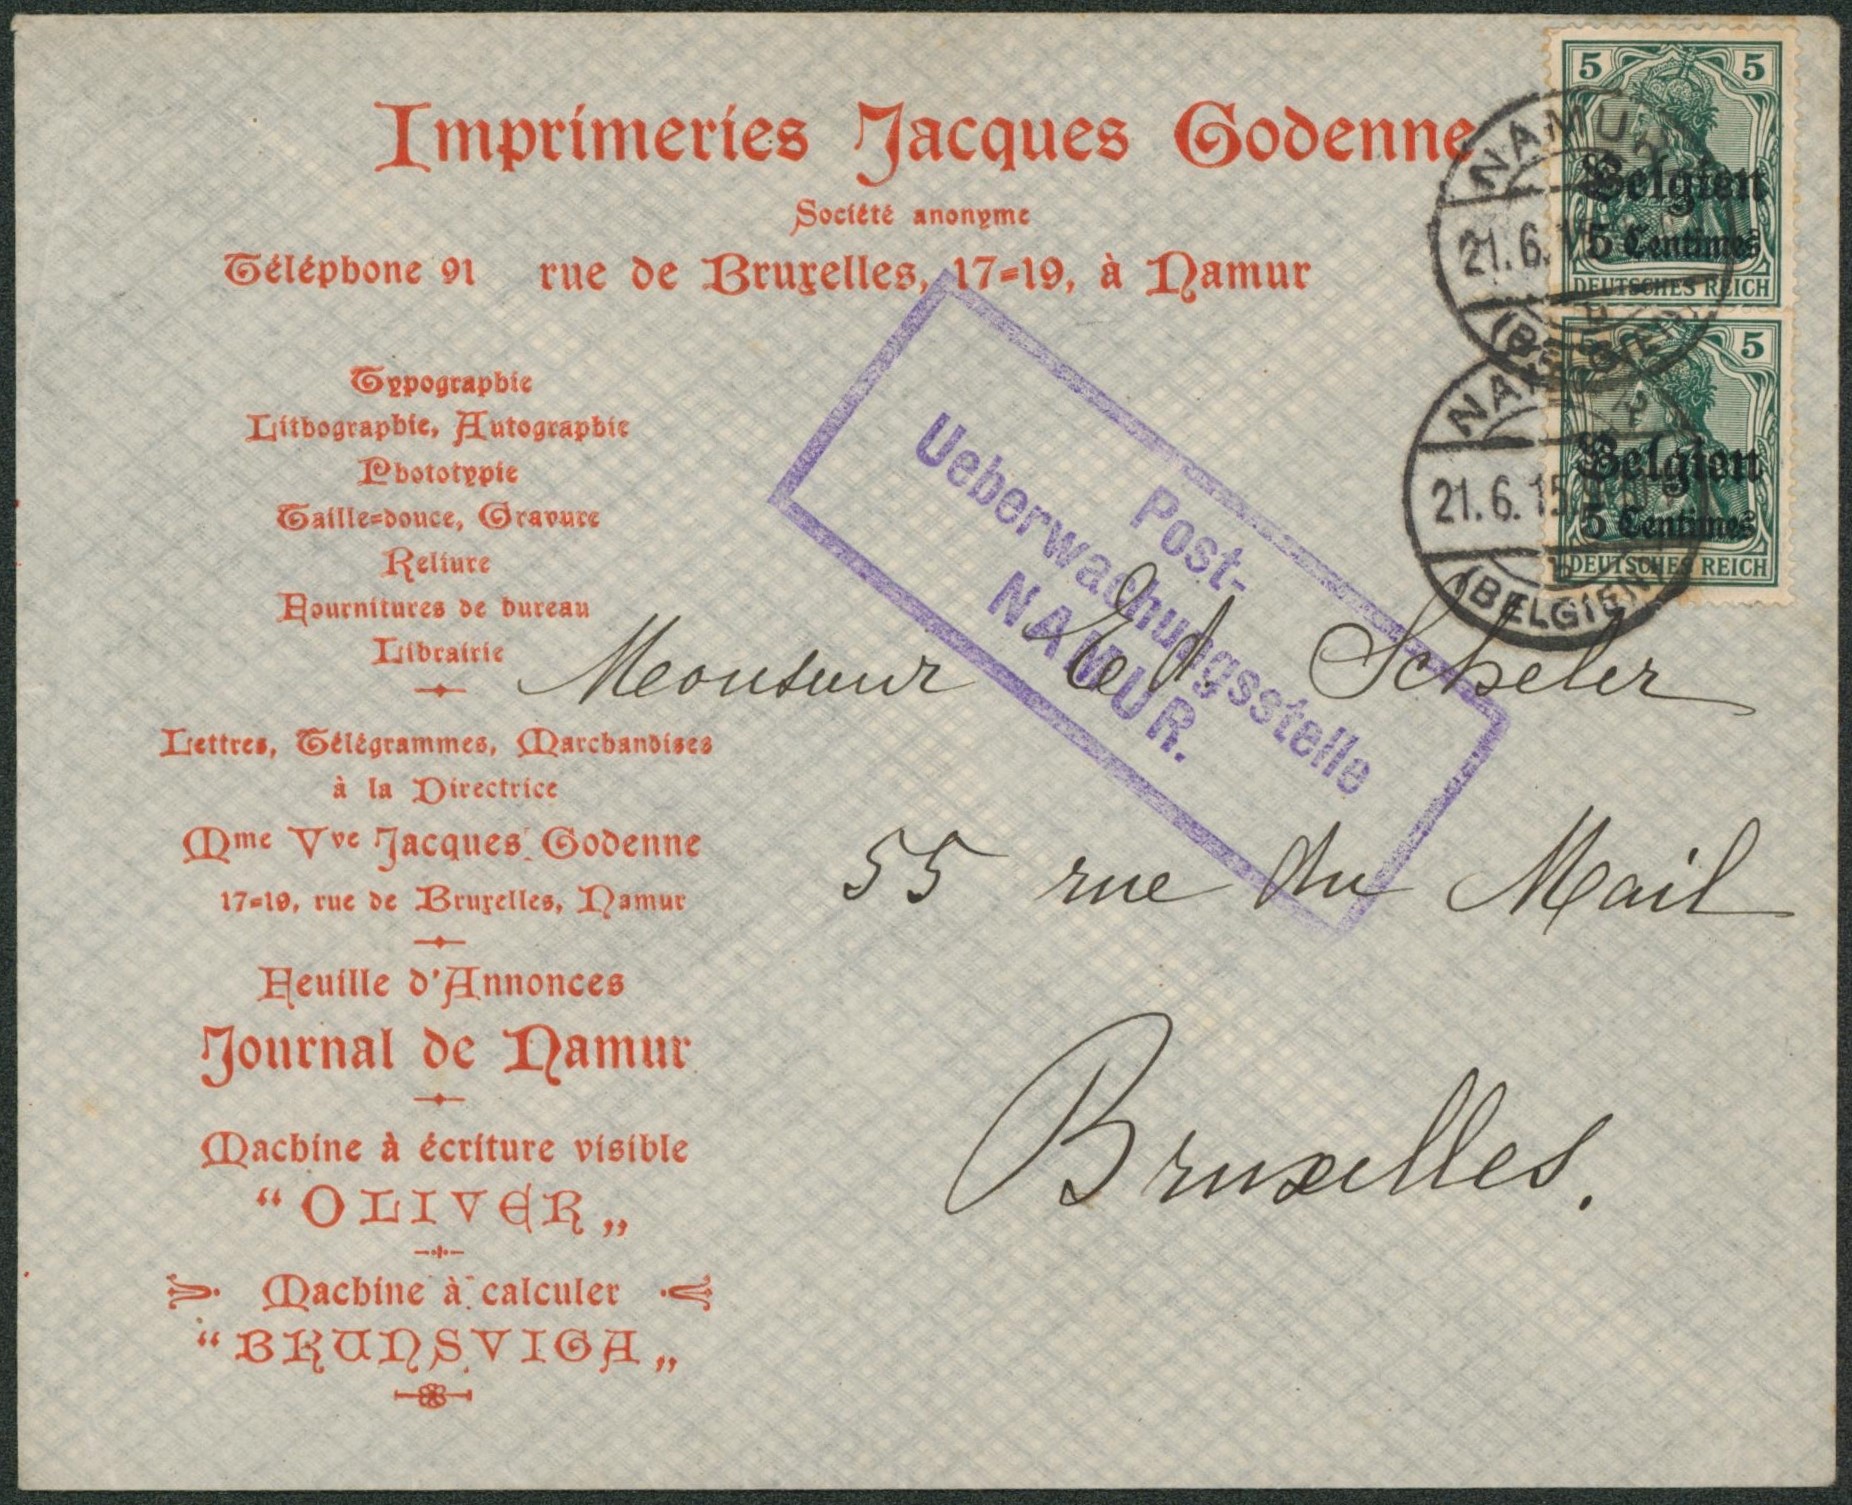 Imprimeries Jacques Godenne
Société anonyme
Téléphone 91 rue de Bruxelles, 17=19, à Namur
Typographie
Lithographie, Autographie
Phototypie
Taille=douce, Gravure
Reliure
Fournitures de bureau
Librairie
Lettres, Télégrammes, Marchandises
à la Directrice
Mme Vve Jacques Godenne
17=19, rue de Bruxelles, Namur
Feuille d'Annonces
Journal de Namur
Machine à écriture visible
“OLIVER„
Machine à calculer
“BRUNSVIGA„
5 5
Belgien
5 Centimes
DEUTSCHES REICH
5 5
Belgien
5 Centimes
DEUTSCHES REICH
NAMUR
21.6.15
(BELGIEN)
NAMUR
21.6.15
(BELGIEN)
Post-
Ueberwachungsstelle
NAMUR.
Monsieur Ed. Scheler
55 rue du Mail
Bruxelles.